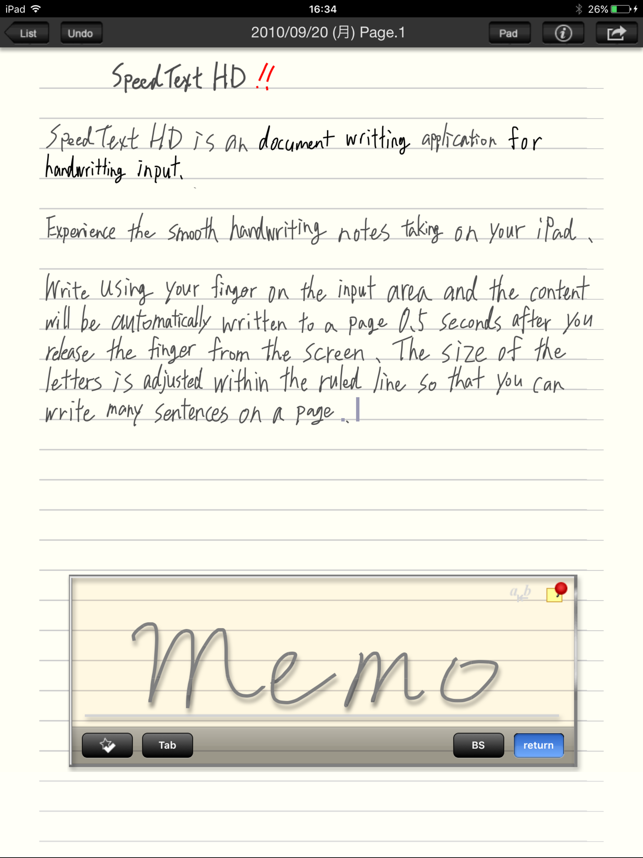 iPad 16:34 26%
List Undo 2010/09/20 (月) Page.1 Pad
SpeedText HD !!
SpeedText HD is an document writting application for
handwritting input.
Experience the smooth handwriting notes taking on your iPad.
Write using your finger on the input area and the content
will be automatically written to a page 0.5 seconds after you
release the finger from the screen. The size of the
letters is adjusted within the ruled line so that you can
write many sentences on a page.
a b
Memo
Tab BS return